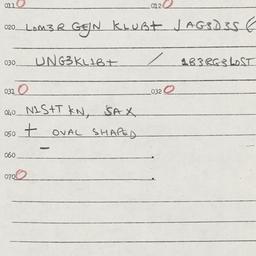 011 012
020 LOM3R GEJN KLUBT JAG3D3S (
030 UNG3KL1BT / 1B3RG3LOST
031 032
040 N1S+T KN, SAX
050 + OVAL SHAPED
060 -
070